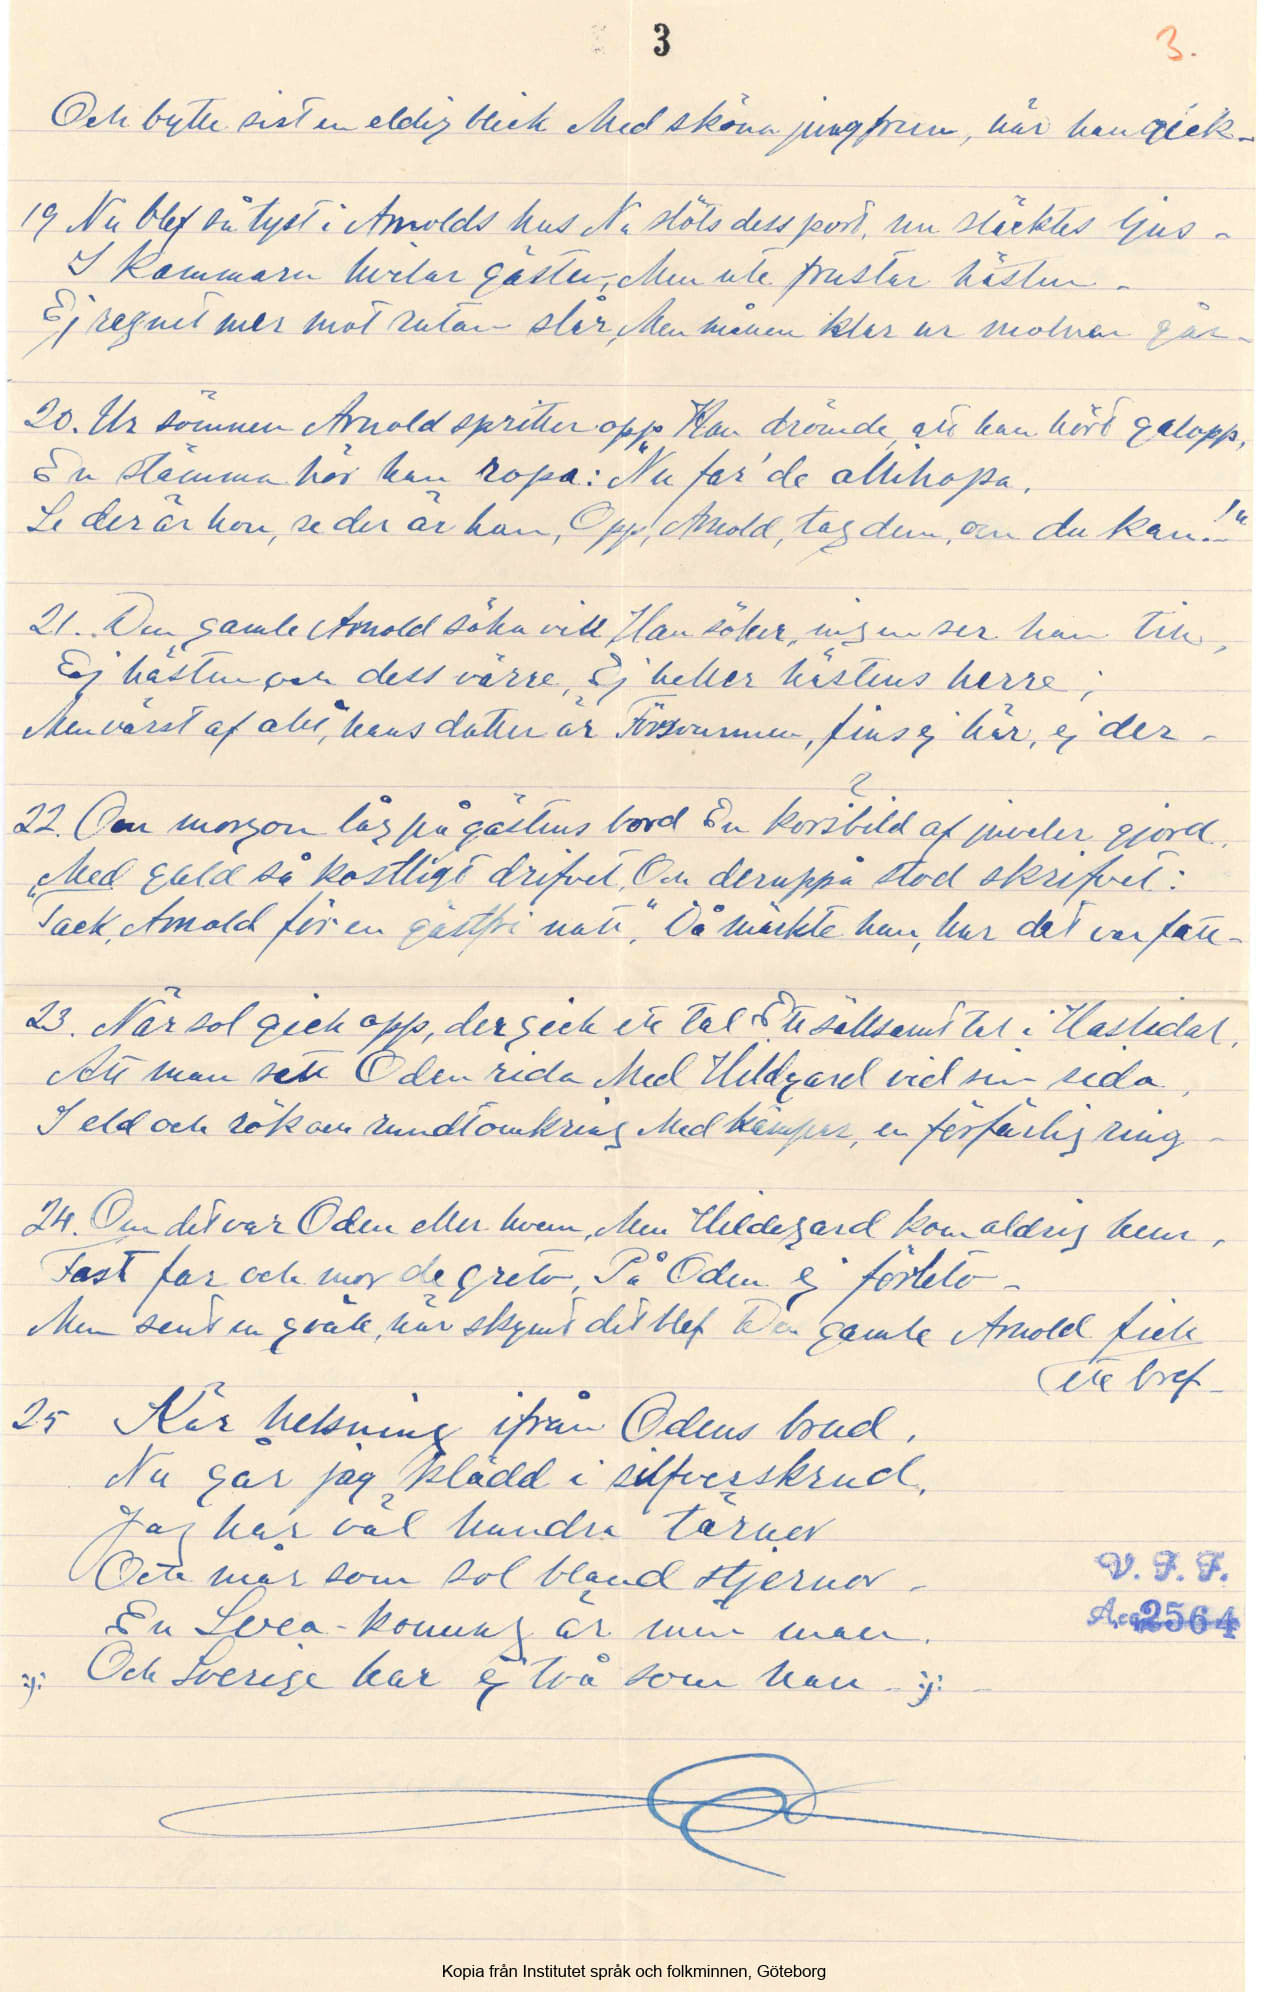 3
3.
Och bytte sist en eldig blick Med sköna jungfrun, när han gick -
19 Nu blef så tyst i Arnolds hus Nu slöts dess port, nu släcktes ljus -
I kammarn hvilar gästen, Men ute frustar hästen -
Ej regnet mer mot rutan slår, Men månen klar ur molnen går -
20. Ur sömnen Arnold spritter opp Han drömde, att han hört galopp,
En stämma hör han ropa: "Nu far' de allihopa.
Se der är hon, se der är han, Opp, Arnold, tag dem, om du kan!"
21. Den gamle Arnold söka vill Han söker, ingen ser han till,
Ej hästen och dess värre, Ej heller hästens herre;
Men värst af allt, hans dotter är Försvunnen, fins ej här, ej der -
?
22. Om morgon låg på gästens bord En korsbild af juveler gjord.
Med guld så kostligt drifvet, Och deruppå stod skrifvet:
"Tack, Arnold för en gästfri natt". Då märkte han, hur det var fatt -
23. När sol gick opp, der gick ett tal Ett sällsamt tal i Haslidal,
Att man sett Oden rida Med Hildgard vid sin sida,
I eld och rök och rundtomkring Med kämpar, en förfärlig ring -
24. Om det var Oden eller hvem, Men Hildegard kom aldrig hem,
Fast far och mor de greto, På Oden ej förleto -
Men sent en qväll, när skymt det blef Den gamle Arnold fick
ett bref -
25 Kär helsning ifrån Odens brud.
Nu går jag klädd i silfverskrud,
Jag har väl hundra tärnor
Och mår som sol bland stjernor -
En Svea-konung är min man.
:/: Och Sverige har ej två som han - :/: -
V. F. F.
Acc 2564
Kopia från Institutet språk och folkminnen, Göteborg